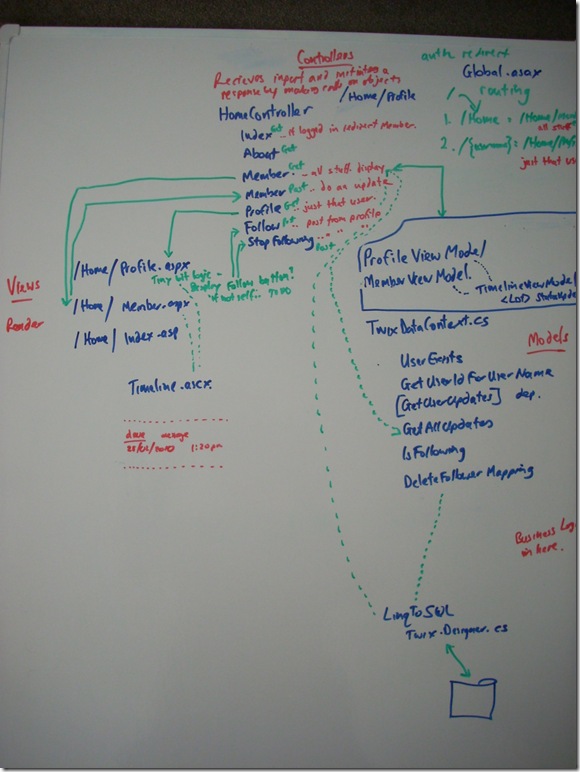 Controllers
Recieves input and initiating a
response by making calls on objects
/Home/Profile
HomeController
Index Get .. if logged in redirect Member.
About Get
Member Get .. all stuff display
Member Post .. do an update
Profile Get .. just that user.
Follow Post .. post from profile
Stop Following Post " " "
auth redirect
Global.asax
/ routing
1. /Home = /Home/
all stuff
2. /{username} = /Home/
just that
Views
Render
/Home/Profile.aspx
Tiny bit logic -
Display Follow button?
if not self.. TODO
/Home/Member.aspx
/Home/Index.asp
Timeline.ascx
dave message
1:20pm
Profile View Model
MemberViewModel.
TimelineViewModel
TwixDataContext.cs
Models
UserExists
GetUserIdForUserName
[GetUserUpdates] dep.
GetAllUpdates
IsFollowing
DeleteFollowerMapping
Business Log
in here.
LinqToSQL
Twix.Designer.cs